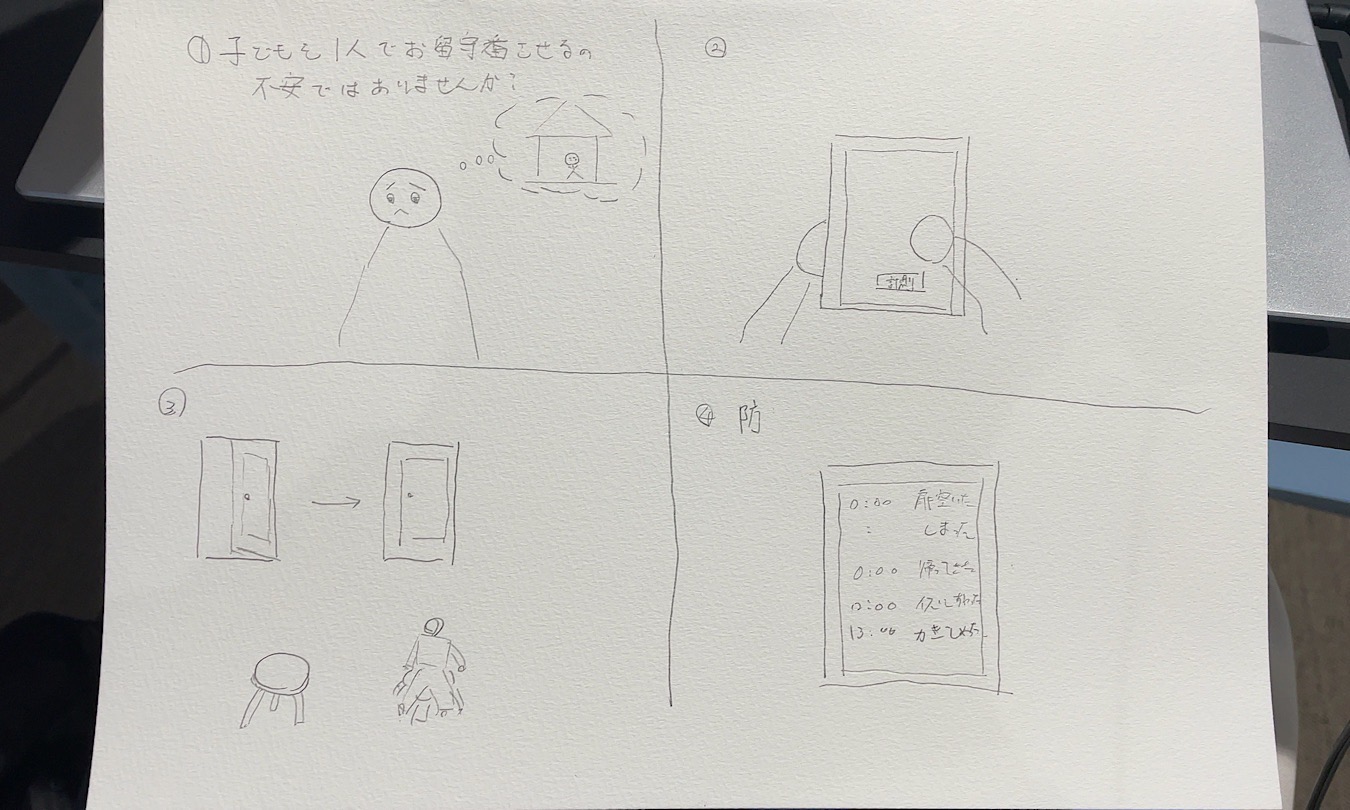 ① 子どもを1人でお留守番させるの
不安ではありませんか?
②
③
④ 防
0:00 扉空いた
: しまった
0:00 帰ってきた
0:00 イスにすわった
13:00 カギしめた